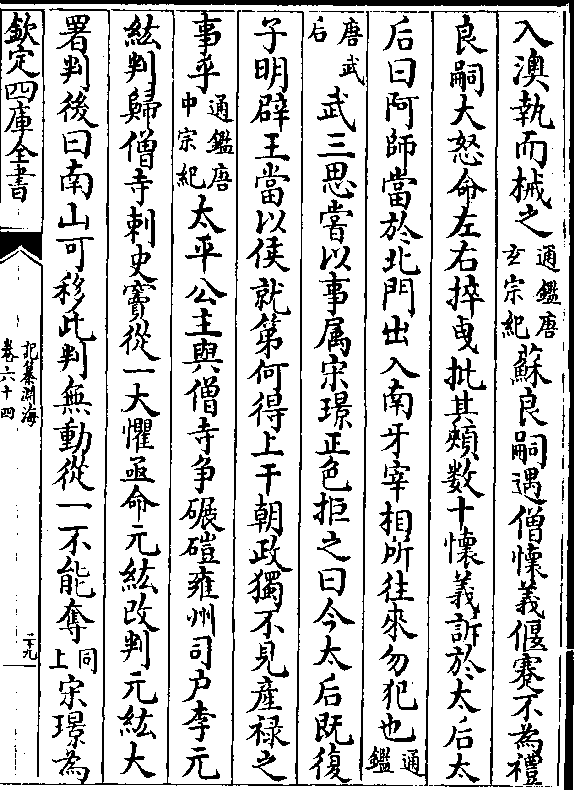 入澳執而械之通鑑唐玄宗紀蘇良嗣遇僧懷義偃蹇不為禮
良嗣大怒命左右捽曳批其頰数十懷義訴於太后太
后曰阿師當於北門出入南牙宰相所往來勿犯也通鑑
唐武后武三思嘗以事属宋璟正色拒之曰今太后既復
子明辟王當以侯就第何得上干朝政獨不見産禄之
事乎通鑑唐中宗紀太平公主與僧寺争碾磑雍州司户李元
紘判歸僧寺刺史竇從一大懼亟命元紘改判元紘大
署判後曰南山可移此判無動從一不能奪同上宋璟為
欽定四庫全書
記纂淵海
卷六十四
二九